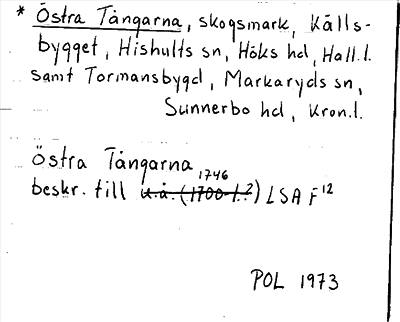 * Östra Tångarna, skogsmark, Källs-
bygget, Hishults sn, Höks hd, Hall.l.
samt Tormansbygd, Markaryds sn,
Sunnerbo hd, Kron.l.
Östra Tångarna
1746
beskr. till u.å. (1700-t.?) LSA F12
POL 1973